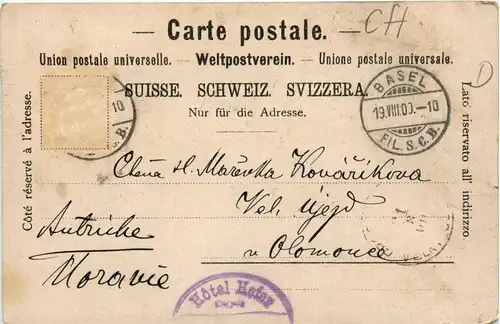 CH
Carte postale.
Union postale universelle. – Weltpostverein. – Unione postale universale.
SUISSE. SCHWEIZ. SVIZZERA.
Nur für die Adresse.
Côté réservé à l'adresse.
Lato riservato all' indirizzo.
D
BASEL
19.VIII.00.–10
FIL. S.C.B.
10
C.B.
Ctěná sl. Mařenka Kovaříkova
Vel. Újezd
u Olomouce
Autriche
Moravie
Hôtel Hofer